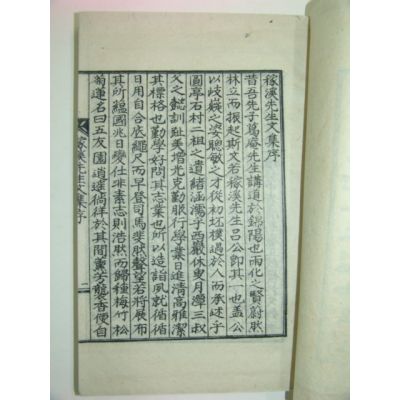 稼溪先生文集序
昔吾先子篤庵先生講道於錦陽也雨化之賢蔚然
林立而振起斯文若稼溪先生呂公卽其一也盖公
以岐嶷之姿聰敏之才從初坯樸過於人而承述乎
圓亭石村二祖之遺緖涵濡乎西嶽休叟月潭三叔
父之懿訓趾美增光克勤服行學業日進淸高雅潔
其標格也勤學好問其志業也所以造詣夙就循循
日用自合底繩尺而早登司馬斐然聲望若將展布
其所蘊國兆日變仕非素志則浩然而歸種梅竹松
菊蓮名曰五友園逍遙徜徉於其間薰芳襲香便自
稼溪先生文集序